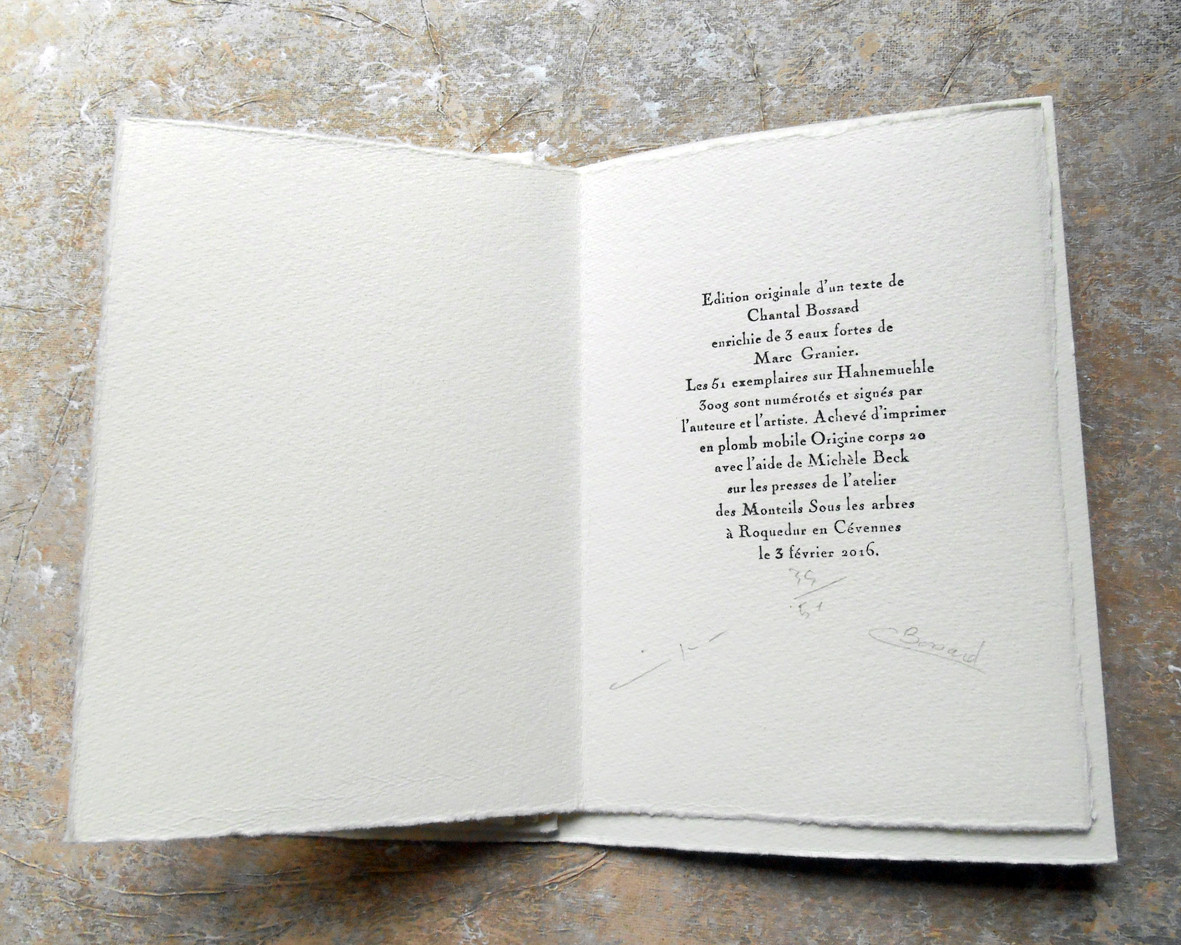 Edition originale d'un texte de
Chantal Bossard
enrichie de 3 eaux fortes de
Marc Granier.
Les 51 exemplaires sur Hahnemuehle
300g sont numérotés et signés par
l'auteure et l'artiste. Achevé d'imprimer
en plomb mobile Origine corps 20
avec l'aide de Michèle Beck
sur les presses de l'atelier
des Monteils Sous les arbres
à Roquedur en Cévennes
le 3 février 2016.
51
CBossard